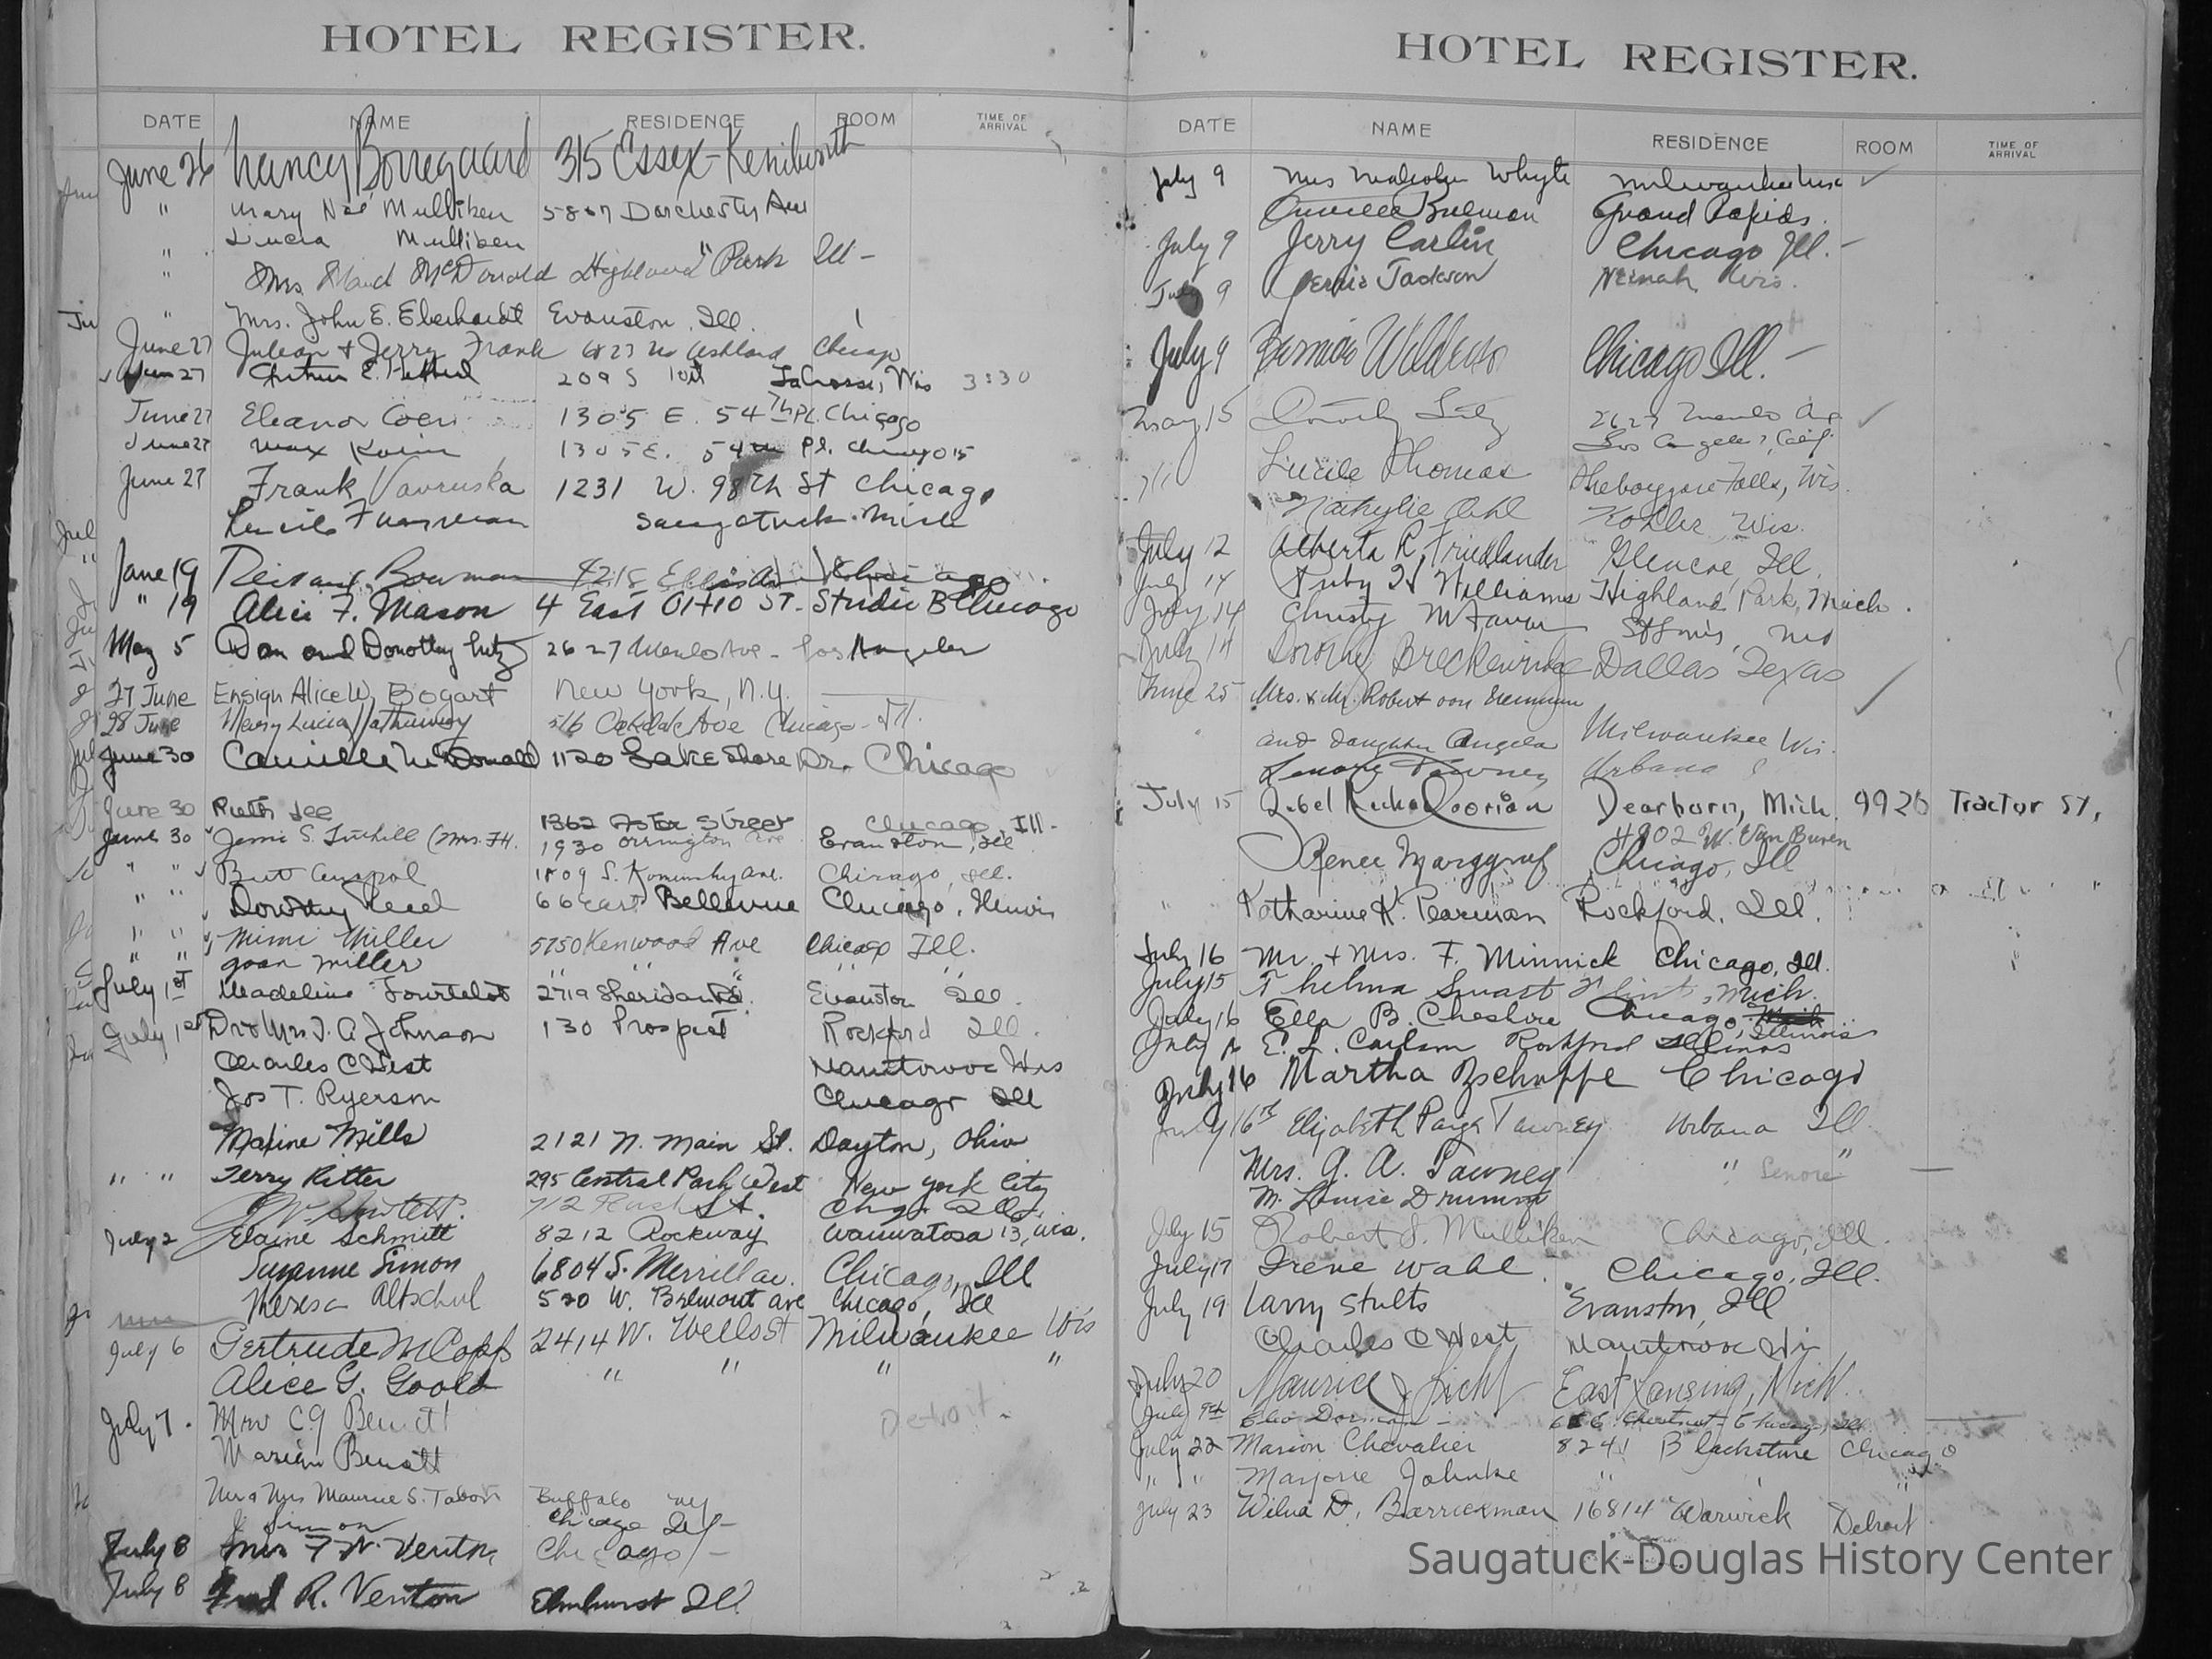 HOTEL REGISTER.
DATE NAME RESIDENCE ROOM TIME OF ARRIVAL
June 26 Nancy Borregaard 315 Essex - Kenilworth
" Mary Nae Mulliken 5807 Dorchester Ave
" Lucia Mulliken "
" Mrs Maud McDonald Highland Park Ill -
" Mrs. John E. Eberhardt Evanston, Ill.
June 27 Julian + Jerry Frank 6827 N Ashland Chicago
June 27 Arthur E. 209 S 10th LaCrosse, Wis 3:30
June 27 Eleanor Coen 1305 E. 54th Pl. Chicago
June 27 Max Kahn 1305 E. 54th Pl. Chicago 15
June 27 Frank Vavruska 1231 W. 98th St Chicago
Saugatuck. Mich
June 19 Bowman 4218 Ellis Av Chicago
" 19 Alice F. Mason 4 East Ohio St. Studio B Chicago
May 5 Dan and Dorothy Lutz 2627 Menlo Ave - Los Angeles
27 June Ensign Alice W. Bogart New York, N.Y.
28 June Mary Lucia Hathaway 516 Oakdale Ave Chicago - Ill.
June 30 Camille McDonald 1120 Lake Shore Dr. Chicago
June 30 Ruth Lee 1362 Foster Street Chicago, Ill -
June 30 Jennie S. Tuthill (Mrs. F.H. 1930 Orrington Ave Evanston, Ill
" " 1809 S. Komensky Ave. Chicago, Ill.
" " Dorothy Reed 66 East Bellevue Chicago, Illinois
" " Mimi Miller 5750 Kenwood Ave Chicago Ill.
" " Joan Miller " " " " "
July 1st Madeline Tourtelot 2719 Sheridan Rd. Evanston Ill.
July 1st Dr & Mrs T. A Johnson 130 Prospect Rockford Ill.
Charles C West Manitowoc Wis
Jos T. Ryerson Chicago Ill
Maxine Mills 2121 N. Main St. Dayton, Ohio
" " Terry Ritter 295 Central Park West New York City
712 Rush St. Chgo. Ill.
July 2 Elaine Schmitt 8212 Rockway Wauwatosa 13, Wis.
Suzanne Simon 6804 S. Merrill Av. Chicago, Ill
Theresa Altschul 520 W. Belmont Ave Chicago, Ill
July 6 Gertrude M Copp 2414 W. Wells St Milwaukee Wis
Alice G. Goold " " " "
July 7. Mrs C G Bennett Detroit.
Marian Bennett
Mr & Mrs Maurice S. Tabor Buffalo NY
J Simon Chicago Ill -
July 8 Mrs F. R. Venton Chicago -
July 8 Fred R. Venton Elmhurst Ill
HOTEL REGISTER.
DATE NAME RESIDENCE ROOM TIME OF ARRIVAL
July 9 Mrs Malcolm Whyte Milwaukee Wisc
Grand Rapids.
July 9 Jerry Carlin Chicago Ill. -
July 9 Jackson Neenah Wis.
July 9 Chicago Ill. -
May 15 Dorothy Lutz 2627 Menlo Ave
Los Angeles, Calif.
Lucile Thomas Sheboygan Falls, Wis.
Kohler, Wis.
July 12 Alberta R. Friedlander Glencoe, Ill.
July 14 Ruby H Williams Highland Park, Mich.
July 14 Christy St Louis, Mo
July 14 Dorothy Breckenridge Dallas Texas
June 25 Mrs. & Mr. Robert von Neumann
and daughter Angela Milwaukee Wis.
Lenore Tawney Urbana
July 15 Dearborn, Mich. 9926 Tractor St.
4902 W. Van Buren
Renee Marggraf Chicago, Ill
" Katharine K. Pearman Rockford, Ill.
July 16 Mr. + Mrs. F. Minnick Chicago, Ill.
July 15 Thelma Swart Flint, Mich.
July 16 Ella B. Cheshire Chicago, Illinois
July E. L. Carlson Rockford Illinois
July 16 Martha Zschoppe Chicago
July 16th Elizabeth Paige Tawney Urbana Ill
Mrs. G. A. Tawney " Lenore "
M. Louise Drummy
July 15 Robert S. Mulliken Chicago, Ill.
July 17 Irene Wahl Chicago, Ill.
July 19 Larry Stults Evanston, Ill
Charles C West Manitowoc Wis
July 20 Maurice East Lansing, Mich.
July 9th Cleo Dorman - 666 Chestnut - Chicago, Ill
July 22 Marion Chevalier 8241 Blackstone Chicago
" " Marjorie Johnke " "
July 23 Wilna D. Barrickman 16814 Warwick Detroit
Saugatuck-Douglas History Center